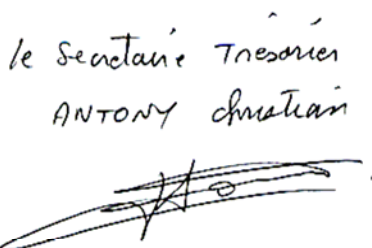 le Secrétaire Trésorier
ANTONY Christian